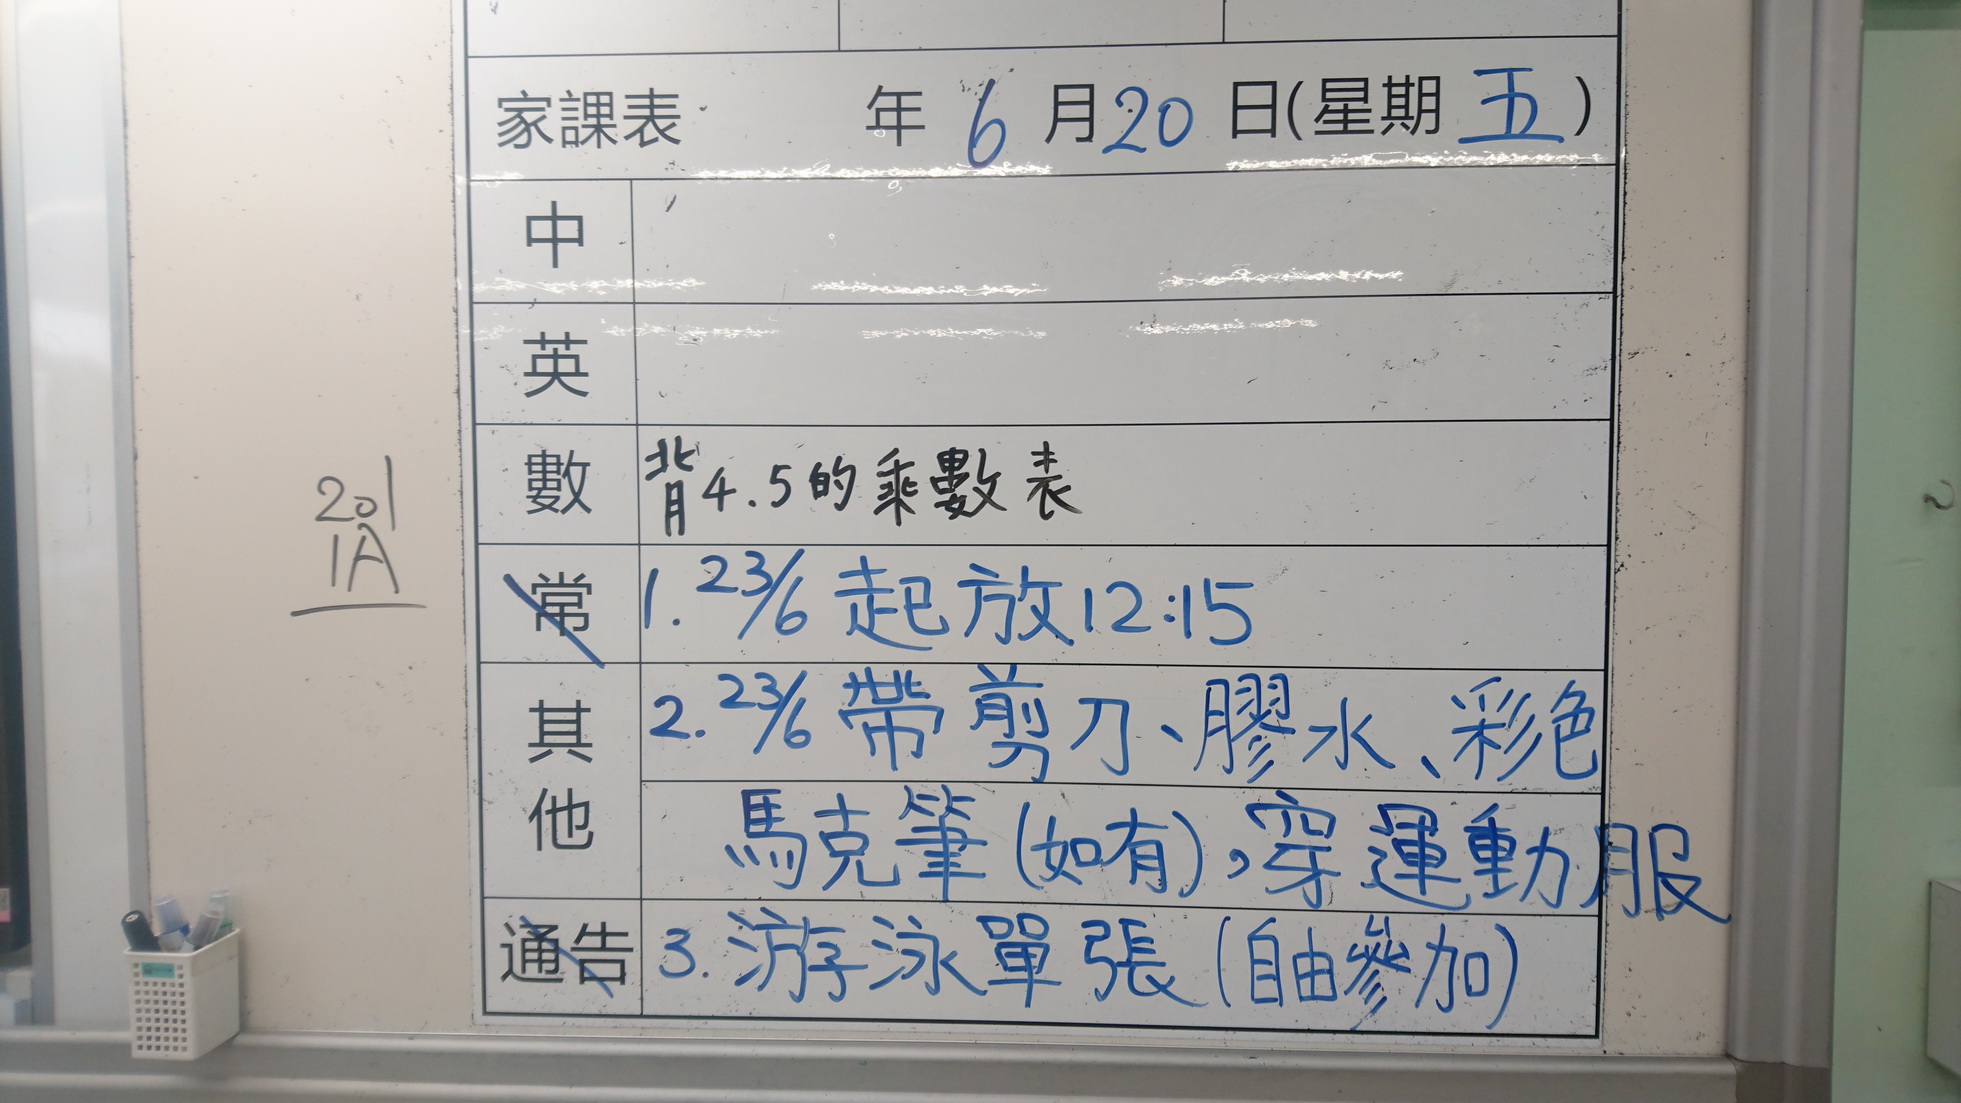 家課表 年 6 月 20 日(星期 五)
中
英
數 背4.5的乘數表
常 1. 23/6 起放12:15
其他 2. 23/6 帶剪刀、膠水、彩色
馬克筆(如有),穿運動服
通告 3. 游泳單張(自由參加)
201
1A